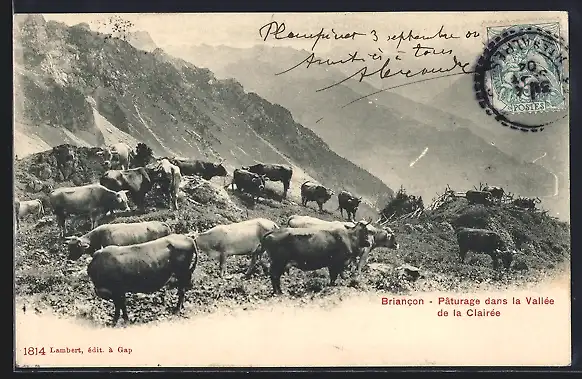 Plampinet 3 septembre 04
Amitiés à tous
Briançon - Pâturage dans la Vallée
de la Clairée
1814 Lambert, édit. à Gap